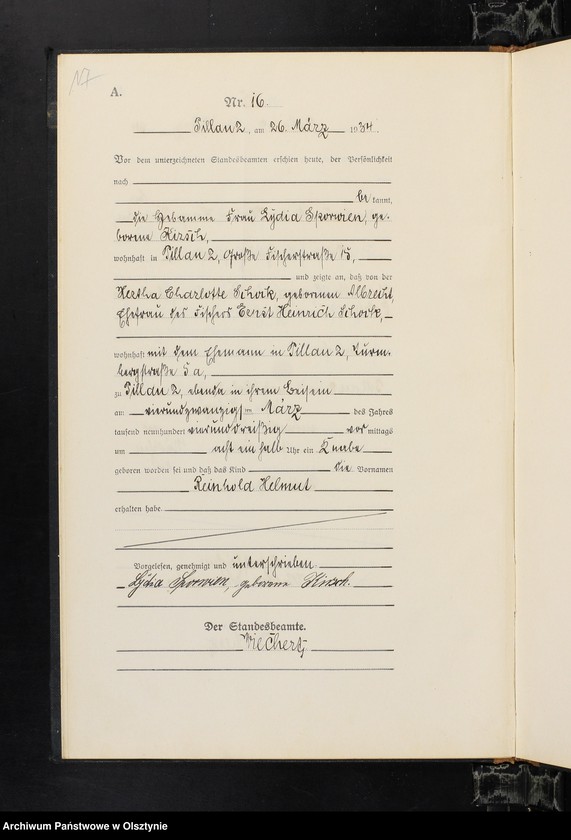 17
A.
Nr. 16.
Pillau 2, am 26. März 1934.
Vor dem unterzeichneten Standesbeamten erschien heute, der Persönlichkeit
nach
be kannt,
die Hebamme Frau Lydia Sporwien, ge-
borene Hirsch,
wohnhaft in Pillau 2, Große Fischerstraße 15,
und zeigte an, daß von der
Hertha Charlotte Schock, geborenen Albrecht,
Ehefrau des Fischers Ernst Heinrich Schock,
wohnhaft mit dem Ehemann in Pillau 2, Turm-
bergstraße 5a,
zu Pillau 2, ebenda in ihrem Beisein
am vierundzwanzigsten März des Jahres
tausend neunhundert vierunddreißig vor mittags
um acht ein halb Uhr ein Knabe
geboren worden sei und daß das Kind die Vornamen
Reinhold Helmut
erhalten habe
Vorgelesen, genehmigt und unterschrieben
Lydia Sporwien, geborene Hirsch.
Der Standesbeamte.
Archiwum Państwowe w Olsztynie